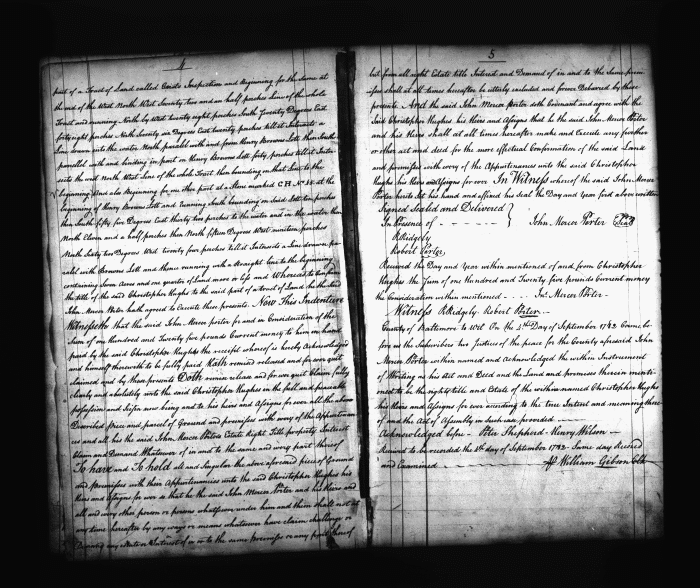 4
part of a Tract of Land called Coals Inspection and Beginning for the same at
the end of the West North West Seventy two and an half perches Line of the whole
Tract and running North by West twenty eight perches South Twenty Degrees East
forty eight perches North Seventy six Degrees East twenty perches till it Intersects a
Line drawn into the water North parallel with and from Henry Browns Lott then South
parallel with and binding in part on Henry Browns Lott forty perches till it Inter-
sects the west North West Line of the whole Tract then bounding on that Line to the
beginning And also Beginning for one other part at a Stone marked C H No 18 at the
beginning of Henry Browns Lott and running South bounding on said Lott ten perches
then South fifty five Degrees East thirty two perches to the water and in the water then
North Eleven and a half perches then North fifteen Degrees West nineteen perches
North Sixty two Degrees West twenty four perches till it Intersects a Line drawn par-
alel with Browns Lott and thence running with a straight Line to the beginning
containing Seven Acres and one quarter of Land more or less and Whereas to confirm
the title of the said Christopher Hughes to the said part of a tract of Land the said
John Mercer Porter hath agreed to Execute these presents. Now This Indenture
Witnesseth that the said John Mercer porter for and in Consideration of the
Sum of one Hundred and Twenty five pounds Current money to him in hand
paid by the said Christopher Hughes the receipt whereof is hereby Acknowledged
and himself therewith to be fully paid Hath remised released and for ever quit
claimed and by these presents Doth remise release and for ever quit Claim fully
clearly and absolutely unto the said Christopher Hughes in the full and peaceable
possession and Seizin now being and to his heirs and Assigns for ever all the above
Described piece and parcel of Ground and premisses with every of the Appurtenan-
ces and all his the said John Mercer Porters Estate Right Title property Interest
Claim and Demand Whatsoever of in and to the same and every part thereof
To have and To hold all and Singular the above aforesaid piece of Ground
and premisses with their Appurtenances unto the said Christopher Hughes his
Heirs and Assigns for ever so that he the said John Mercer Porter and his Heirs and
all and every other person or persons whatsoever under him and them shall not at
any time hereafter by any ways or means whatsoever have claim challenge or
Demand any Estate or Interest of in or to the same premisses or any part thereof
5
but from all right Estate title Interest and Demand of in and to the Same prem-
isses shall at all times hereafter be utterly secluded and forever Debarred by these
presents And the said John Mercer Porter doth Covenant and agree with the
Said Christopher Hughes his Heirs and Assigns that he the said John Mercer Porter
and his Heirs Shall at all times hereafter make and Execute any further
or other act and deed for the more effectual Confirmation of the said Land
and premisses with every of the Appurtenances unto the said Christopher
Hughes his Heirs and Assigns for ever In Witness whereof the said John Mercer
Porter hereto Set his hand and affixed his Seal the Day and Year first above written
Signed Sealed and Delivered }
In Presence of - - - - - John Mercer Porter Seal
R Ridgely
Robert Porter
Received the Day and Year within mentioned of and from Christopher
Hughes the Sum of one Hundred and Twenty five pounds Current money
the Consideration within mentioned - - - Jn. Mercer Porter -
Witness R Ridgely Robert Porter -
County of Baltimore to Wit On the 31st Day of September 1783 Come be-
fore us the Subscribers two Justices of the peace for the County aforesaid John
Mercer Porter within named and Acknowledged the within Instrument
of Writing as his Act and Deed and the Land and premises therein menti-
oned to be the right title and Estate of the within named Christopher Hughes
his Heirs and Assigns for ever according to the true Intent and meaning there
of and the Act of Assembly in such case provided -
Acknowledged before - Peter Shepherd - Henry Wilson -
Received to be recorded the 1st day of September 1783 - Same day Recd
and Examined - - - - William Gibson Clk